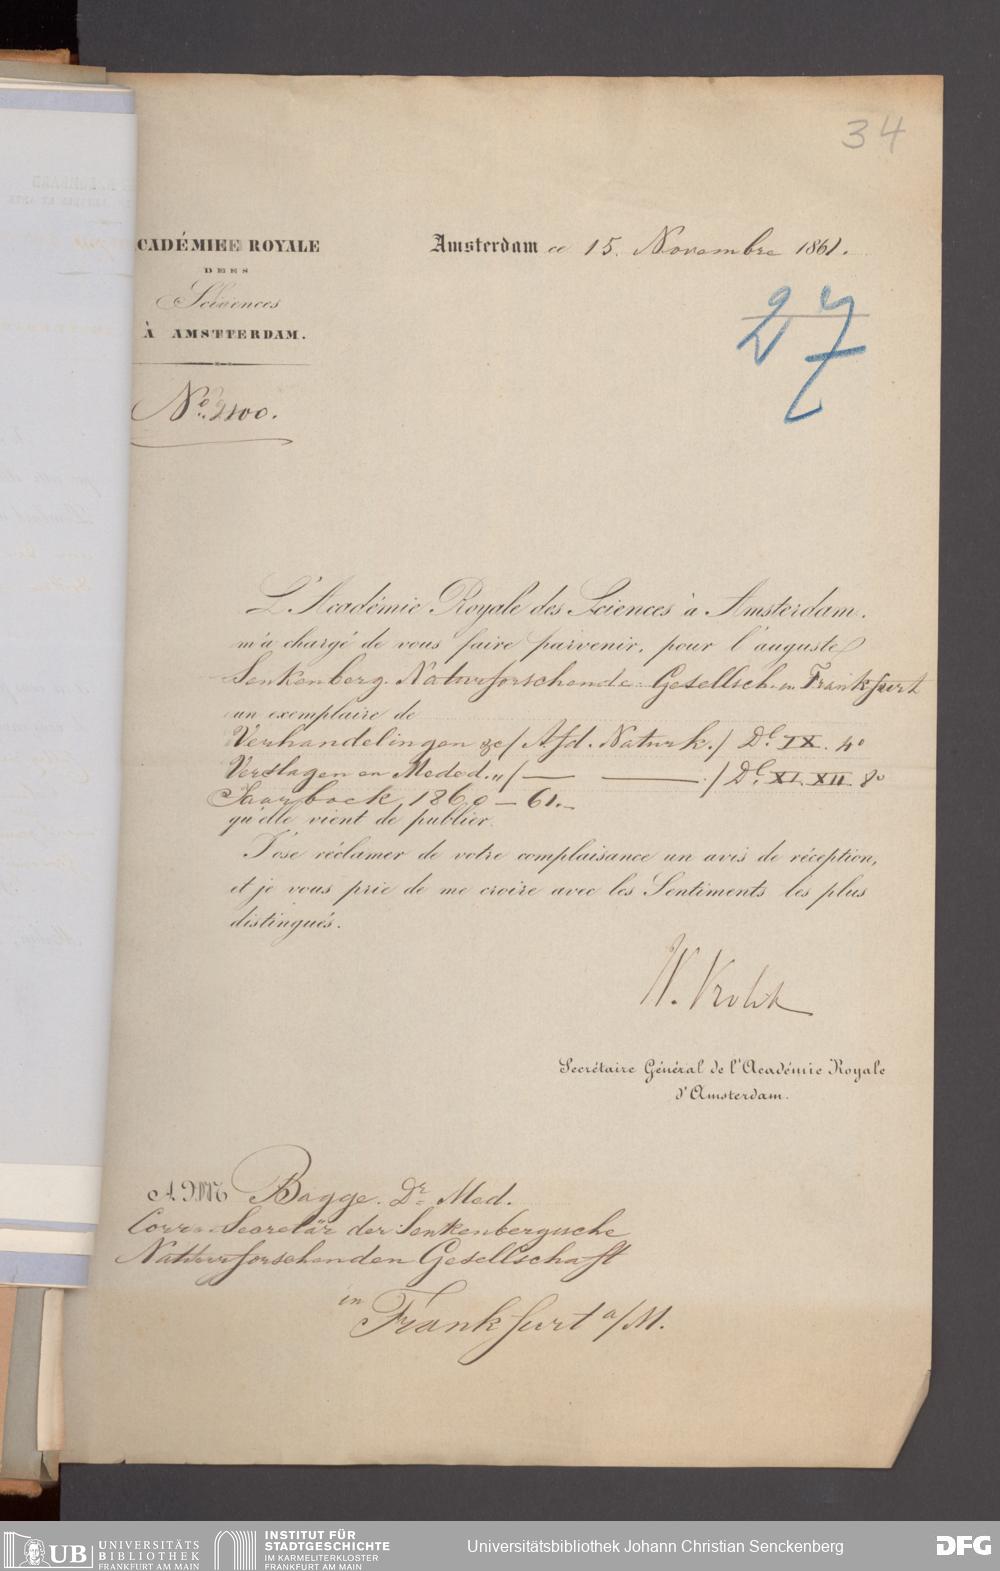 34
CADÉMIE ROYALE
DES
Sciences
À AMSTERDAM.
Amsterdam ce 15. Novembre 1861.
27
No. 2100.
L'Académie Royale des Sciences à Amsterdam.
m'a chargé de vous faire parvenir, pour l'auguste
Senkenberg. Naturforschende Gesellsch. in Frankfurt
un exemplaire de
Verhandelingen &c/ Afd. Natuurk./ Dl. IX. 4o
Verslagen en Meded. „ /— —./ Dl. XI. XII 8o
Jaarboek 1860 — 61.
qu'elle vient de publier.
J'ose réclamer de votre complaisance un avis de réception,
et je vous prie de me croire avec les Sentiments les plus
distingués.
W. Vrolik
Secrétaire Général de l'Académie Royale
d'Amsterdam.
A Mr Bagge. Dr. Med.
Corr. Secretär der Senkenbergische
Naturforschenden Gesellschaft
in Frankfurt a/M.
UB UNIVERSITÄTS
BIBLIOTHEK
FRANKFURT AM MAIN
INSTITUT FÜR
STADTGESCHICHTE
IM KARMELITERKLOSTER
FRANKFURT AM MAIN
Universitätsbibliothek Johann Christian Senckenberg
DFG